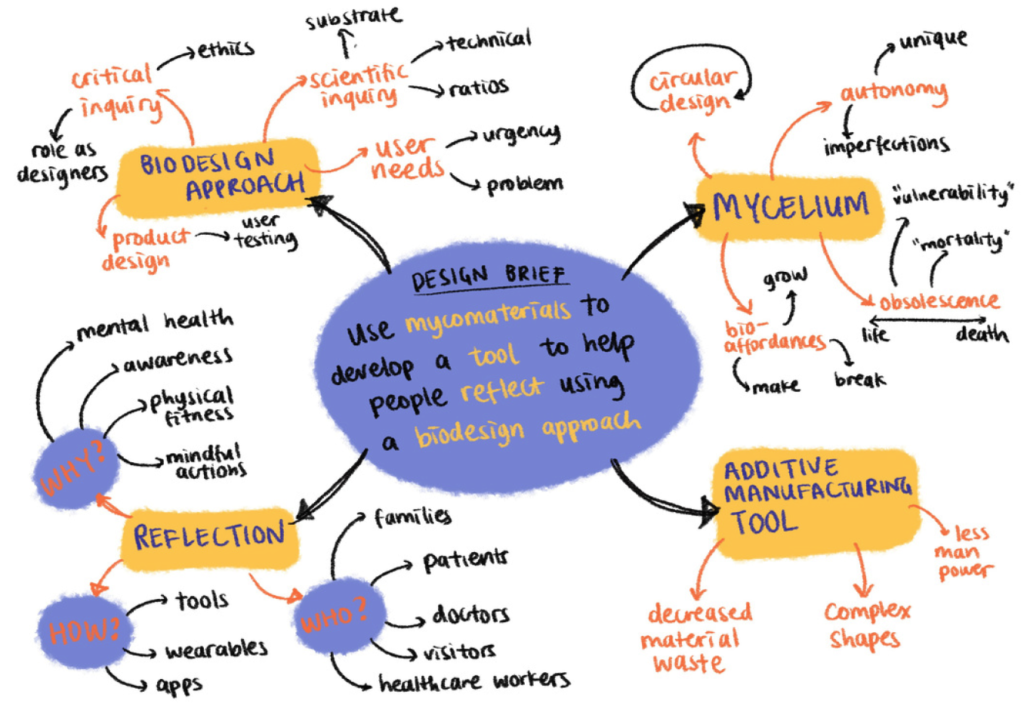 substrate
ethics
technical
critical
inquiry
scientific
inquiry
ratios
role as
designers
BIODESIGN
APPROACH
user
needs
urgency
problem
product
design
user
testing
circular
design
unique
autonomy
imperfections
MYCELIUM
"vulnerability"
"mortality"
grow
bio-
affordances
obsolescence
life
death
make
break
DESIGN BRIEF
Use mycomaterials to
develop a tool to help
people reflect using
a biodesign approach
mental health
awareness
physical
fitness
mindful
actions
WHY?
REFLECTION
HOW?
tools
wearables
apps
WHO?
families
patients
doctors
visitors
healthcare workers
ADDITIVE
MANUFACTURING
TOOL
less
man
power
decreased
material
waste
Complex
shapes